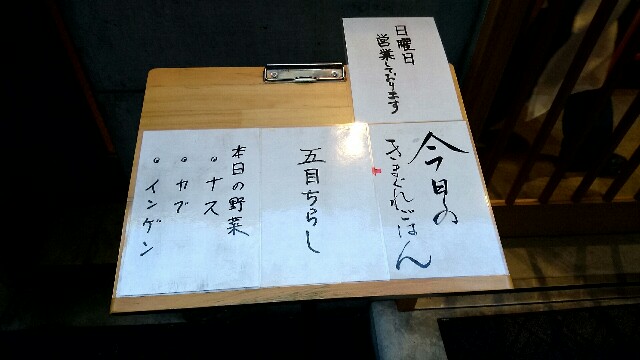 日曜日
営業しております
今日の
きまぐれごはん
五目ちらし
本日の野菜
・ナス
・カブ
・インゲン